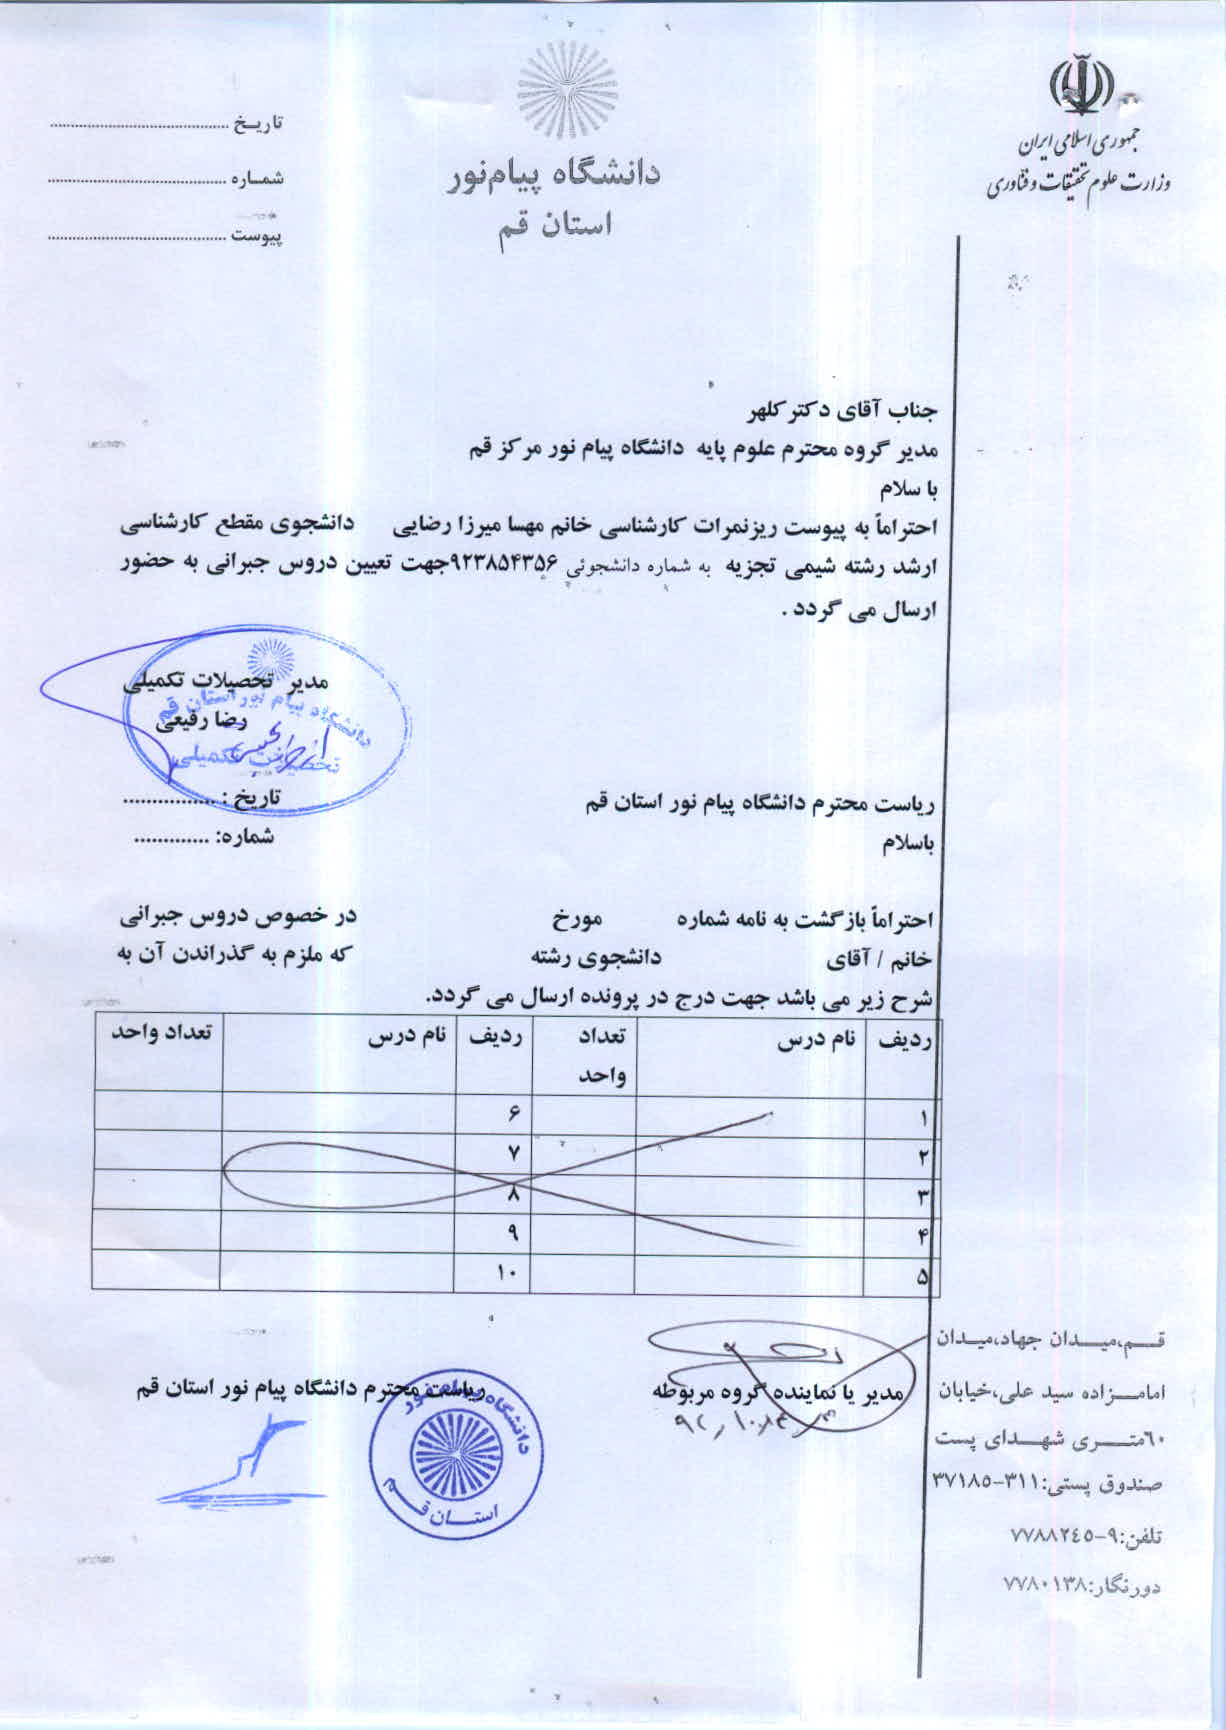 جمهوری اسلامی ایران
وزارت علوم تحقیقات و فناوری
دانشگاه پیام‌نور
استان قم
تاریـخ ......................................
شمـاره ......................................
پیوست ......................................
جناب آقای دکتر کلهر
مدیر گروه محترم علوم پایه دانشگاه پیام نور مرکز قم
با سلام
احتراماً به پیوست ریزنمرات کارشناسی خانم مهسا میرزا رضایی دانشجوی مقطع کارشناسی
ارشد رشته شیمی تجزیه به شماره دانشجوئی ۹۲۳۸۵۴۳۵۶جهت تعیین دروس جبرانی به حضور
ارسال می گردد .
مدیر تحصیلات تکمیلی
رضا رفیعی
دانشگاه پیام نور استان قم
تحصیلات تکمیلی
ریاست محترم دانشگاه پیام نور استان قم
تاریخ : ................
باسلام
شماره: .............
احتراماً بازگشت به نامه شماره مورخ در خصوص دروس جبرانی
خانم / آقای دانشجوی رشته که ملزم به گذراندن آن به
شرح زیر می باشد جهت درج در پرونده ارسال می گردد.
ردیف نام درس تعداد واحد ردیف نام درس تعداد واحد
۱ ۶
۲ ۷
۳ ۸
۴ ۹
۵ ۱۰
مدیر یا نماینده گروه مربوطه
ریاست محترم دانشگاه پیام نور استان قم
دانشگاه پیام نور
استـان قـم
قــم،میــدان جهاد،میـدان
امامـزاده سید علی،خیابان
٦۰متـــری شهـدای پست
صندوق پستی:۳۱۱-۳۷۱۸۵
تلفن:۹-۷۷۸۸۲٤٥
دورنگار:۷۷۸۰۱۳۸